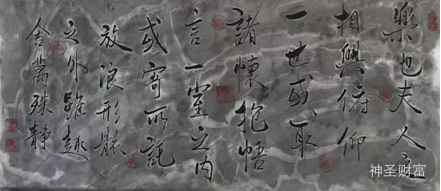 樂也夫人之
相與俯仰
一世或取
諸懷抱悟
言一室之内
或寄所託
放浪形骸
之外雖趣
舍萬殊静
神圣财富